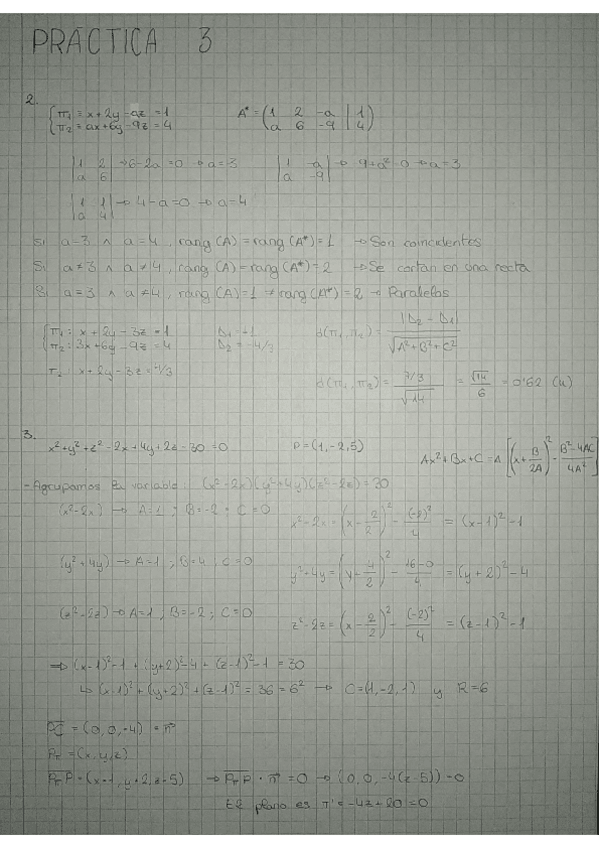 PRÁCTICA 3
2.
{π₁ ≡ x+2y-az = 1
{π₂ ≡ ax+6y-9z = 4
A* = (1 2 -a | 1
a 6 -9 | 4)
|1 2; a 6| → 6-2a=0 → a=3
|1 -a; a -9| → 9+a²=0 → a=3
|1 1; a 4| → 4-a=0 → a=4
Si a=3 ∧ a=4, rang(A)=rang(A*)=1 → Son coincidentes
Si a≠3 ∧ a≠4, rang(A)=rang(A*)=2 → Se cortan en una recta
Si a=3 ∧ a≠4, rang(A)=1 ≠ rang(A*)=2 → Paralelos
{π₁: x+2y-3z=1
{π₂: 3x+6y-9z=4
D₁=-1
D₂=-4/3
d(π₁,π₂) = |D₂-D₁| / √(A²+B²+C²)
π₂: x+2y-3z=4/3
d(π₁,π₂) = 7/3 / √14 = √14/6 = 0'62 (u)
3.
x²+y²+z²-2x+4y+2z-30=0
P=(1,-2,5)
Ax²+Bx+C = A[(x+B/2A)² - B²-4AC/4A²]
-Agrupamos variable: (x²-2x)(y²+4y)(z²-2z)=30
(x²-2x) → A=1; B=-2; C=0
x²-2x = (x-2/2)² - (-2)²/4 = (x-1)²-1
(y²+4y) → A=1; B=4; C=0
y²+4y = (y-4/2)² - 16-0/4 = (y+2)²-4
(z²-2z) → A=1; B=-2; C=0
z²-2z = (x-2/2)² - (-2)²/4 = (z-1)²-1
⇒ (x-1)²-1 + (y+2)²-4 + (z-1)²-1 = 30
↳ (x-1)²+(y+2)²+(z-1)² = 36 = 6² → C=(1,-2,1) y R=6
PC = (0,0,-4) = n
Pπ = (x,y,z)
PπP = (x-1,y+2,z-5) → PπP · n = 0 → (0,0,-4(z-5))=0
El plano es π' ≡ -4z+20=0